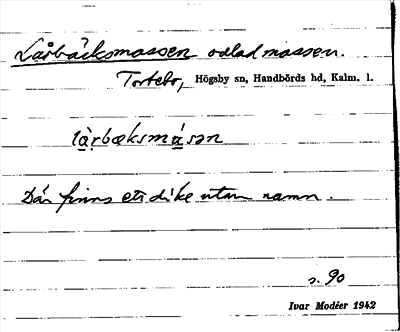 Lårbäcksmossen odlad mossen.
Tortebo, Högsby sn, Handbörds hd, Kalm. l.
lårbæksmåsən
Där finns ett dike utan namn.
s. 90
Ivar Modéer 1942